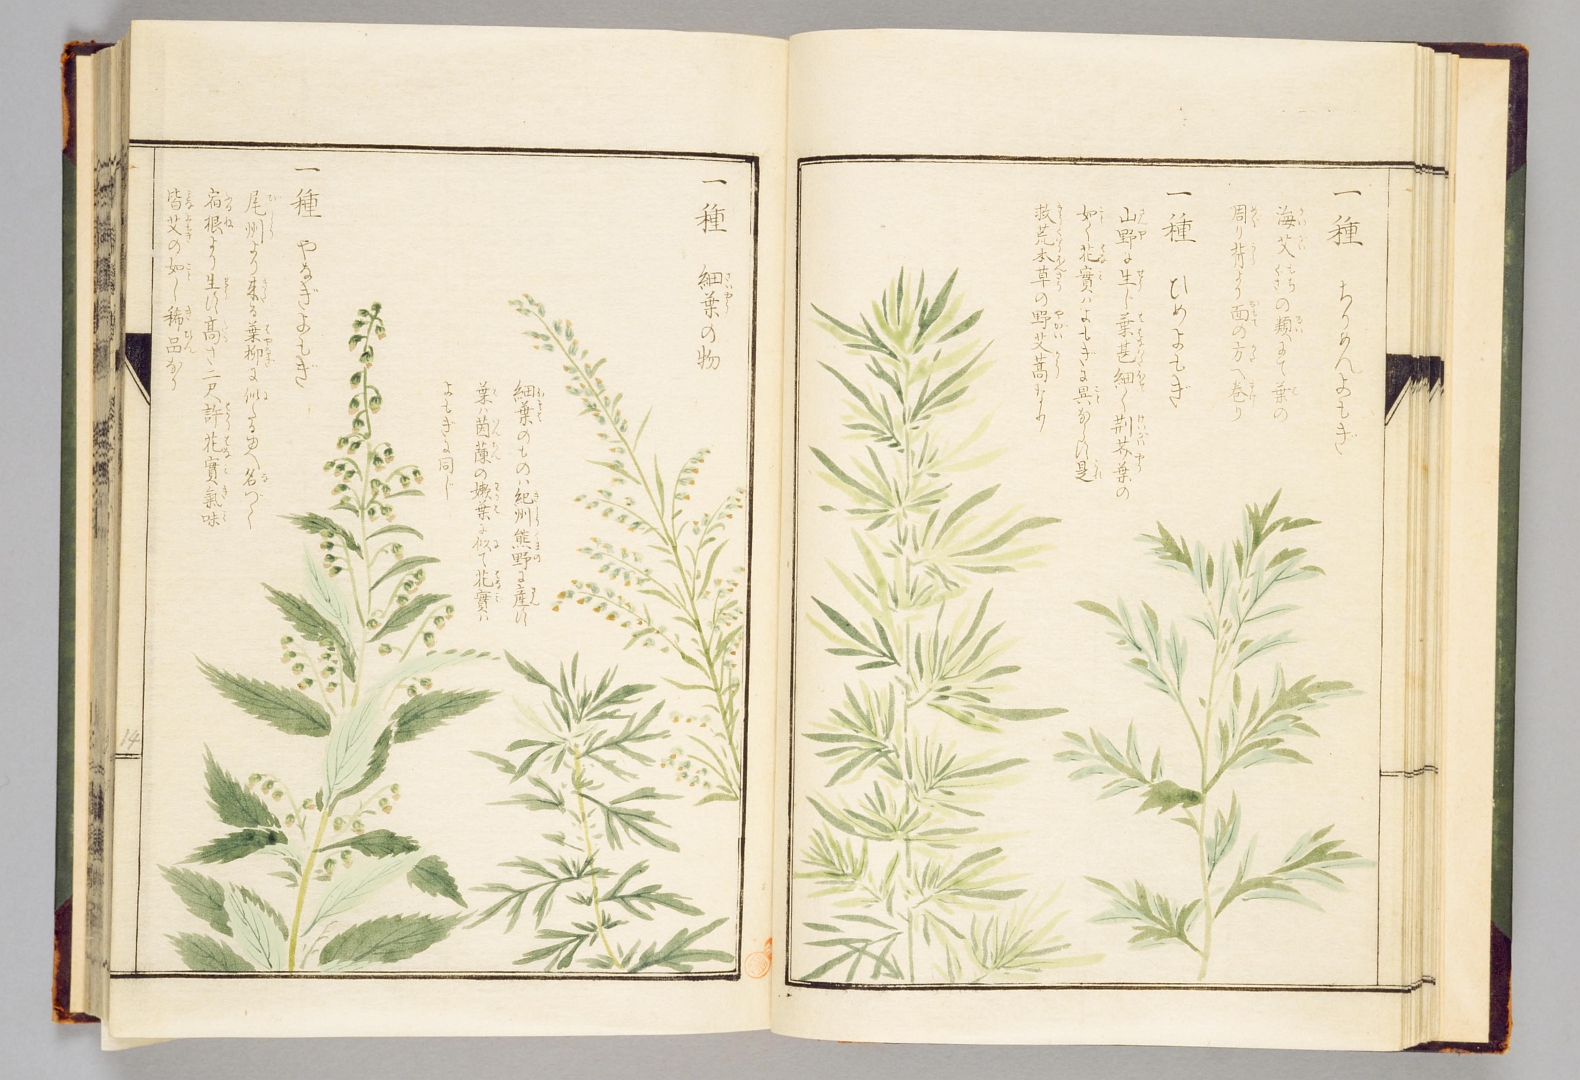 一種 ちりめんよもぎ
海艾もちくさの類にて葉の
周り持より面の方へ巻り
一種 ひめよもぎ
山野に生じ葉甚細く荆芥葉の
如く花實ハよもぎに異なし是
救荒本草の野艾蒿なり
一種 細葉の物
細葉のものハ紀州熊野に産す
葉ハ茵蔯の嫩葉に似て花實ハ
よもぎに同じ
一種 やなぎよもぎ
尾州より来る葉柳に似たるゆへ名づく
宿根より生ず高さ二尺許花實氣味
皆艾の如し稀品なり
14